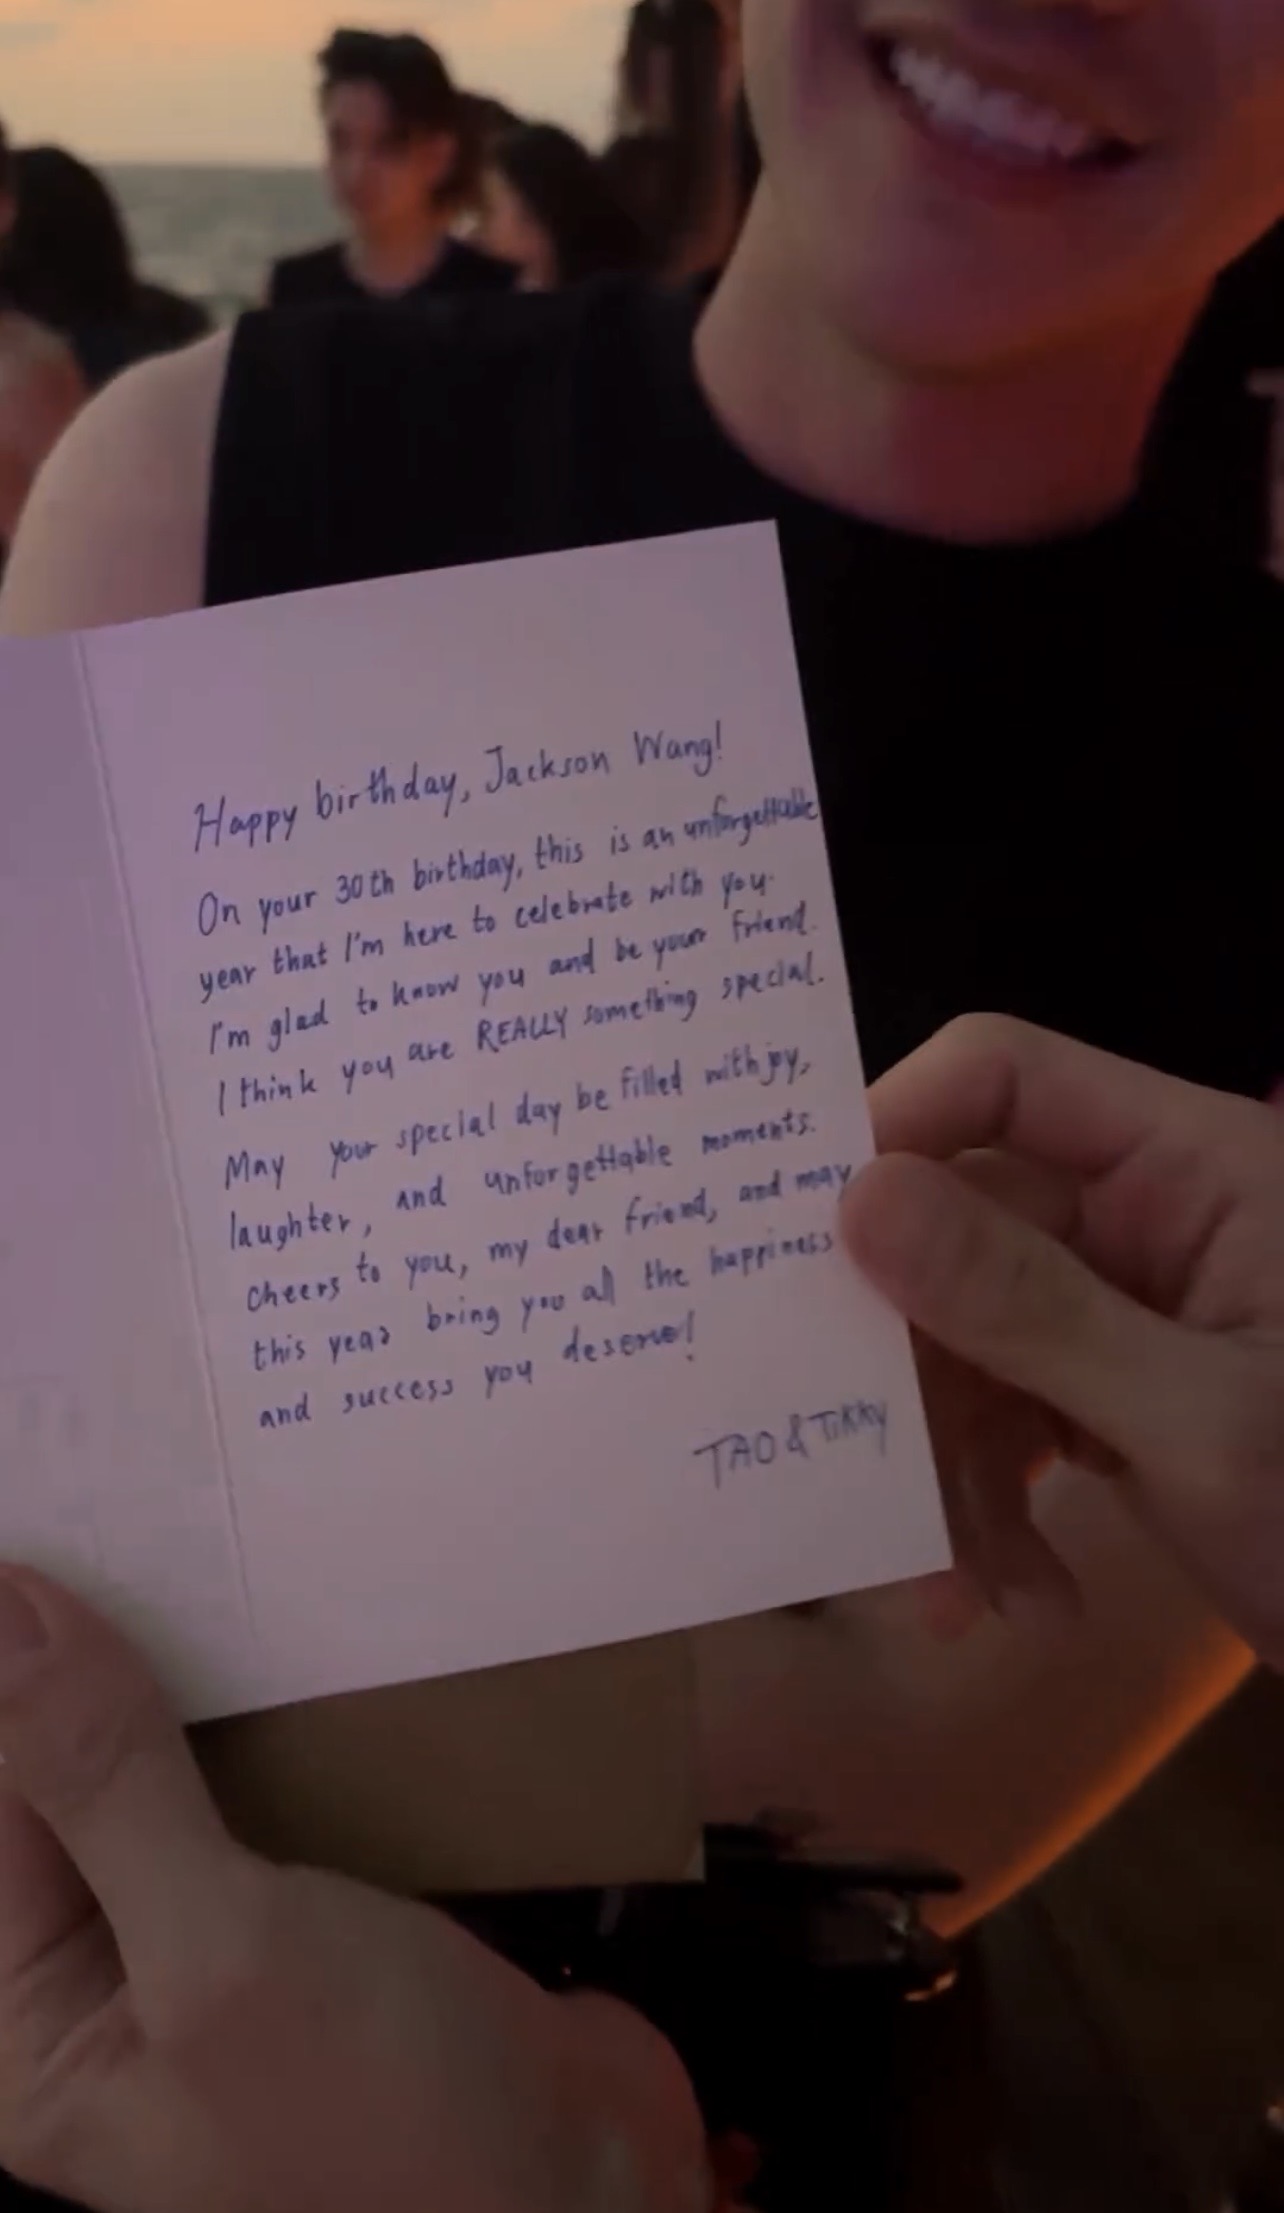 Happy birthday, Jackson Wang!
On your 30th birthday, this is an unforgettable
year that I'm here to celebrate with you.
I'm glad to know you and be your friend.
I think you are REALLY something special.
May your special day be filled with joy,
laughter, and unforgettable moments.
cheers to you, my dear friend, and may
this year bring you all the happiness
and success you deserve!
TAO & TIKKY